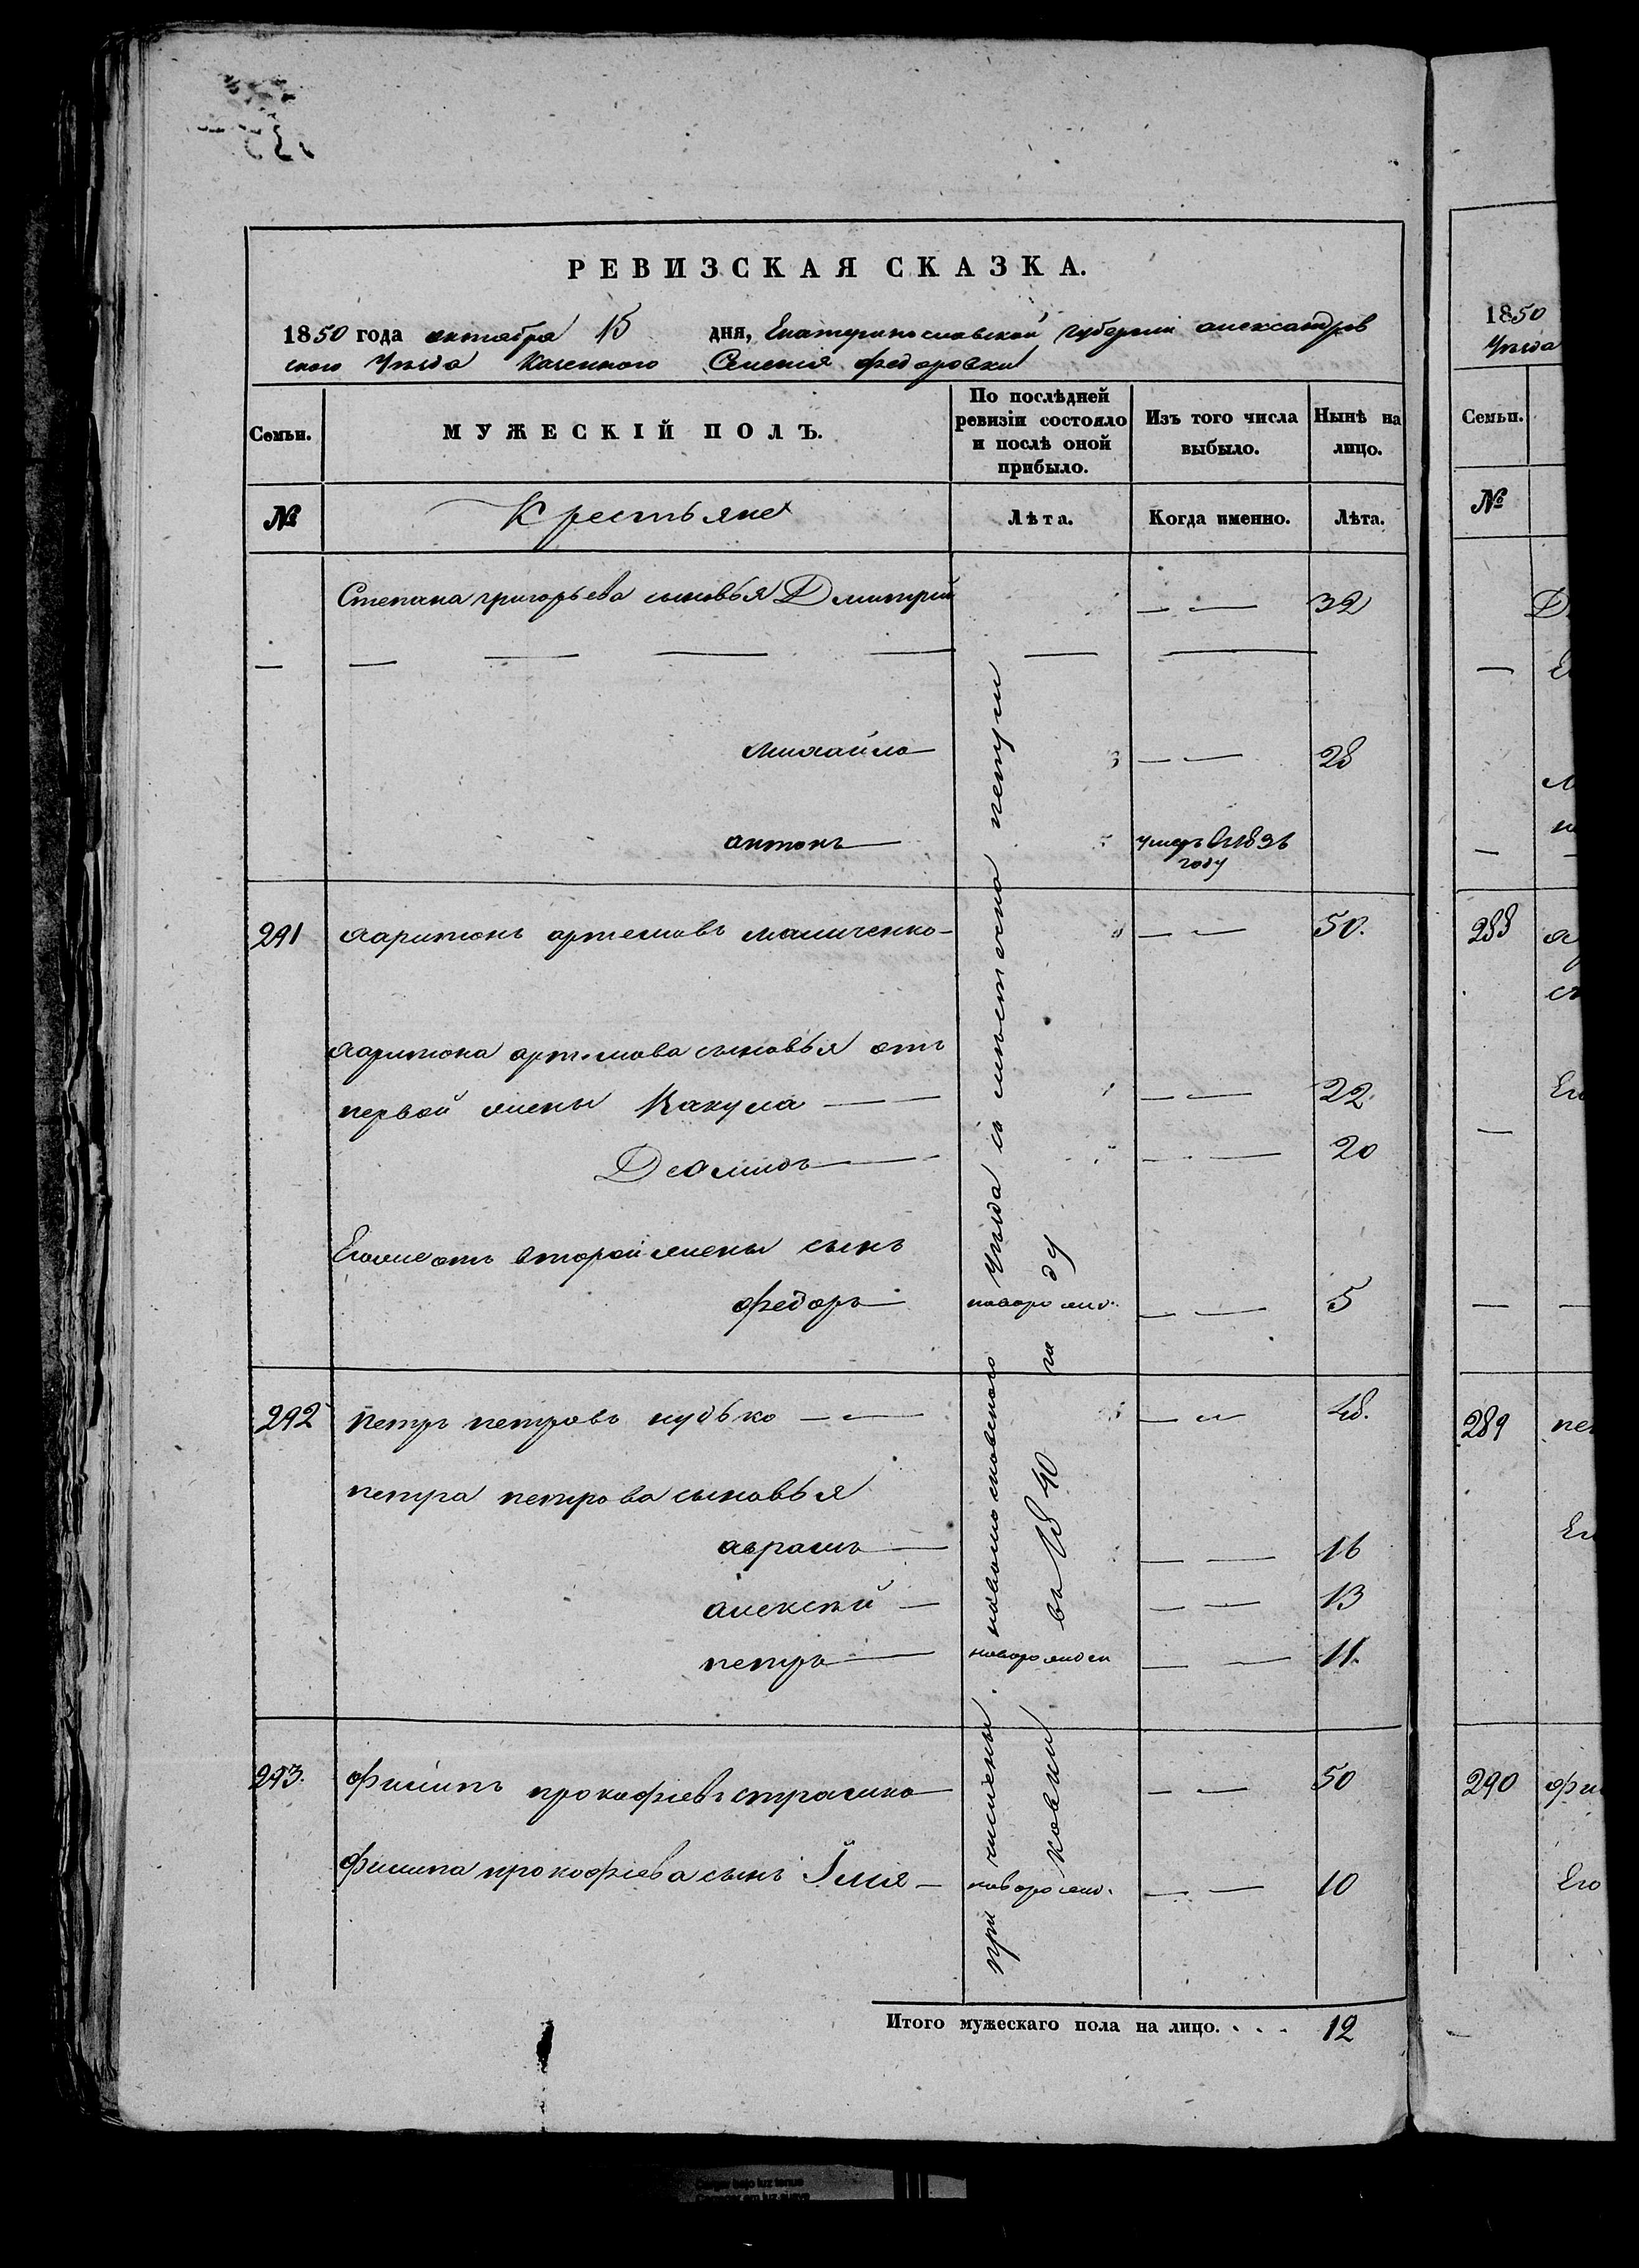 РЕВИЗСКАЯ СКАЗКА.
1850 года октября 15 дня, Екатеринославской губернии александров
ского Уезда Казенного Селения федоровки
Семьи.
МУЖЕСКІЙ ПОЛЪ.
По послѣдней ревизіи состояло и послѣ оной прибыло.
Изъ того числа выбыло.
Нынѣ на лицо.
№
Крестьяне
Лѣта.
Когда именно.
Лѣта.
Степана григорьева сыновья Дмитрій — — 32
Михайло — — 28
антонъ умеръ в 1836
году
291 харитонъ артемовъ — — 50.
харитона артемова сыновья отъ
первой жены Вакула — — 22.
Деомидъ — — 20
Егожеотъ второй жены сынъ
федоръ новорожд. — — 5
292 петръ петровъ — — 48.
петра петрова сыновья
аврамъ — — 16
алексѣй — — 13
петръ новорожден — — 11.
293. филипъ прокофіевъ — — 50
филипа прокофіева сынъ Илія — новорожд. — — 10
при числены новомосковского Уезда съ местечка
въ 1840 году
Итого мужескаго пола на лицо. . . . 12
1850
Уезда
Семьи.
№
288
289
290